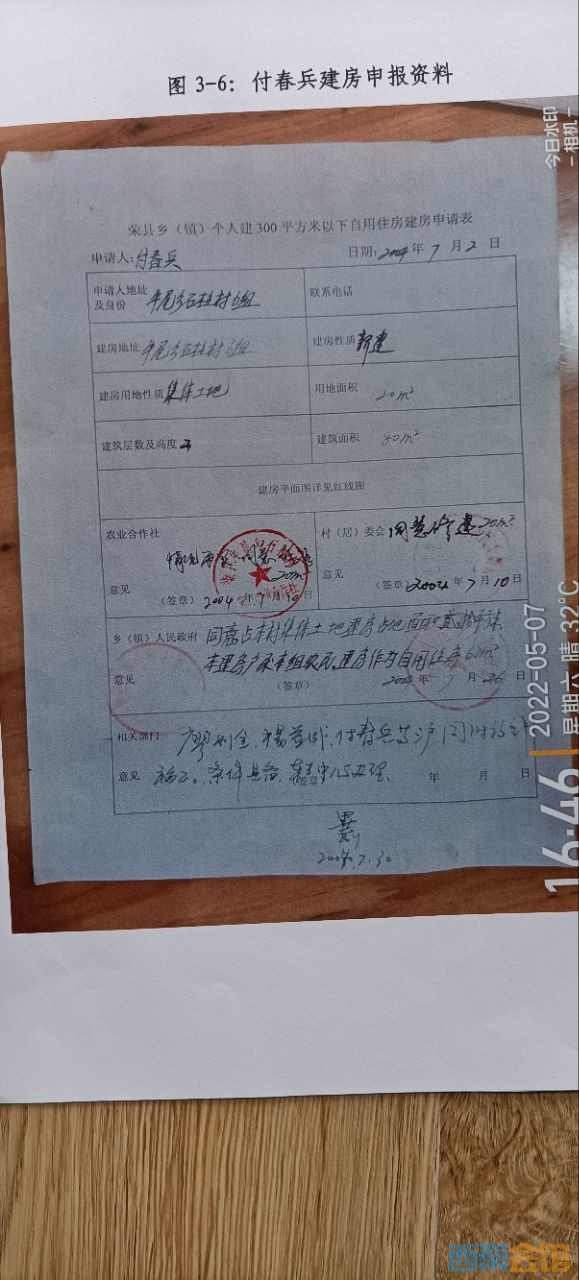 图 3-6：付春兵建房申报资料
今日水印
-相机-
荣县乡（镇）个人建300平方米以下自用住房建房申请表
申请人:付春兵 日期:2004年7月2日
申请人地址及身份 牟尾乡石柱村6组 联系电话
建房地址 牟尾乡石柱村6组 建房性质 新建
建房用地性质 集体土地 用地面积 20m²
建筑层数及高度 建筑面积 80m²
建房平面图详见红线图
农业合作社 村（居）委会 同意修建20m²
情况 同意
20m²
意见 意见
（签章）2004年7月10日 （签章）2004年7月10日
乡（镇）人民政府 同意占本村集体土地建房占地面积贰拾平米
本组农民,建房作为自用住房60m²
意见 （签章） 7月26日
相关部门 付春兵
意见 条件具备 办理 年 月 日
2004.7.30
16:46
2022-05-07
星期六 晴 32℃
西秦会馆